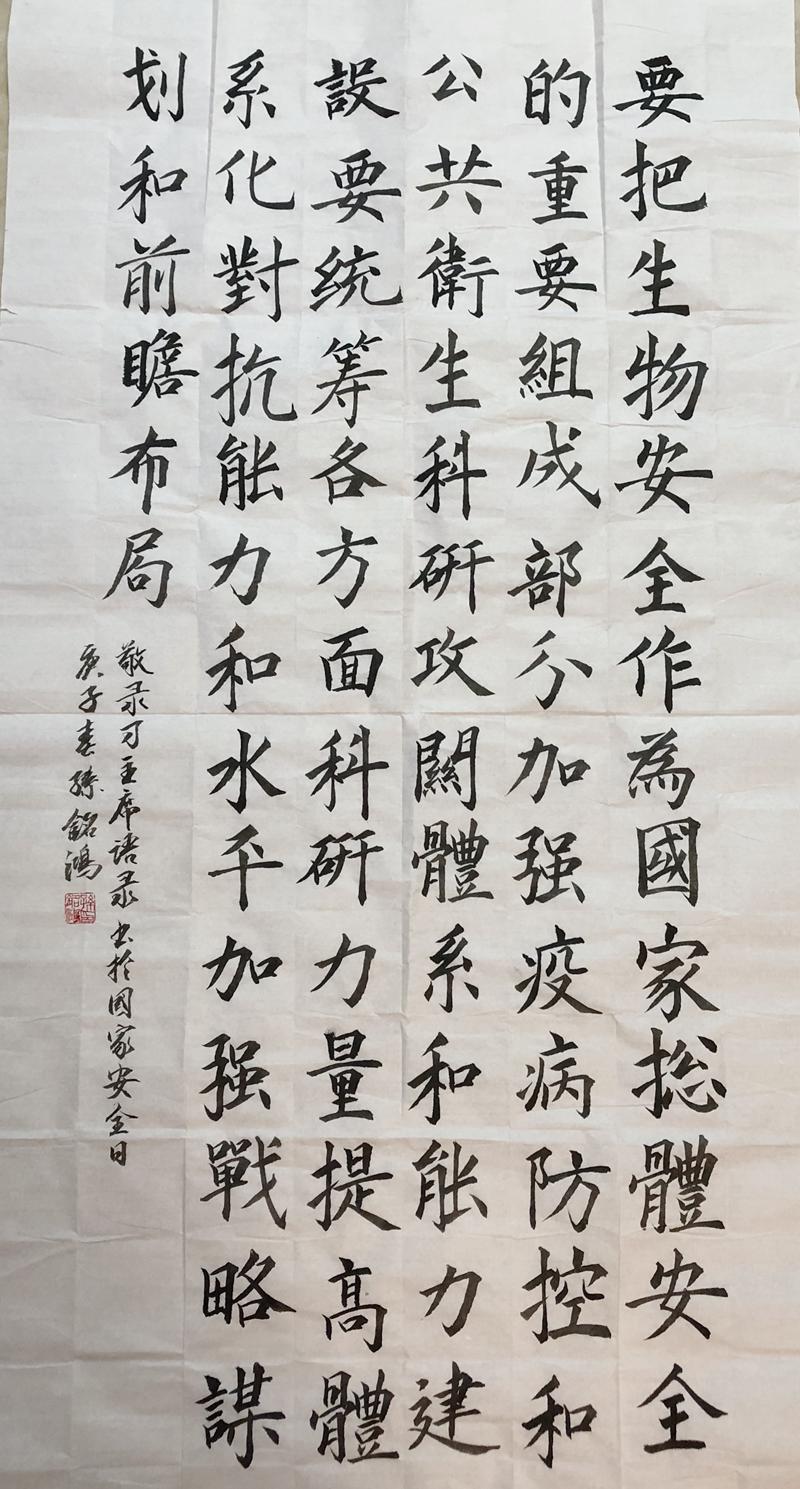 要把生物安全作為國家捴體安全
的重要組成部分加强疫病防控和
公共衛生科研攻關體系和能力建
設要统筹各方面科研力量提高體
系化對抗能力和水平加强戰略謀
划和前瞻布局
敬录习主席语录书於国家安全日
庚子春孫銘鴻